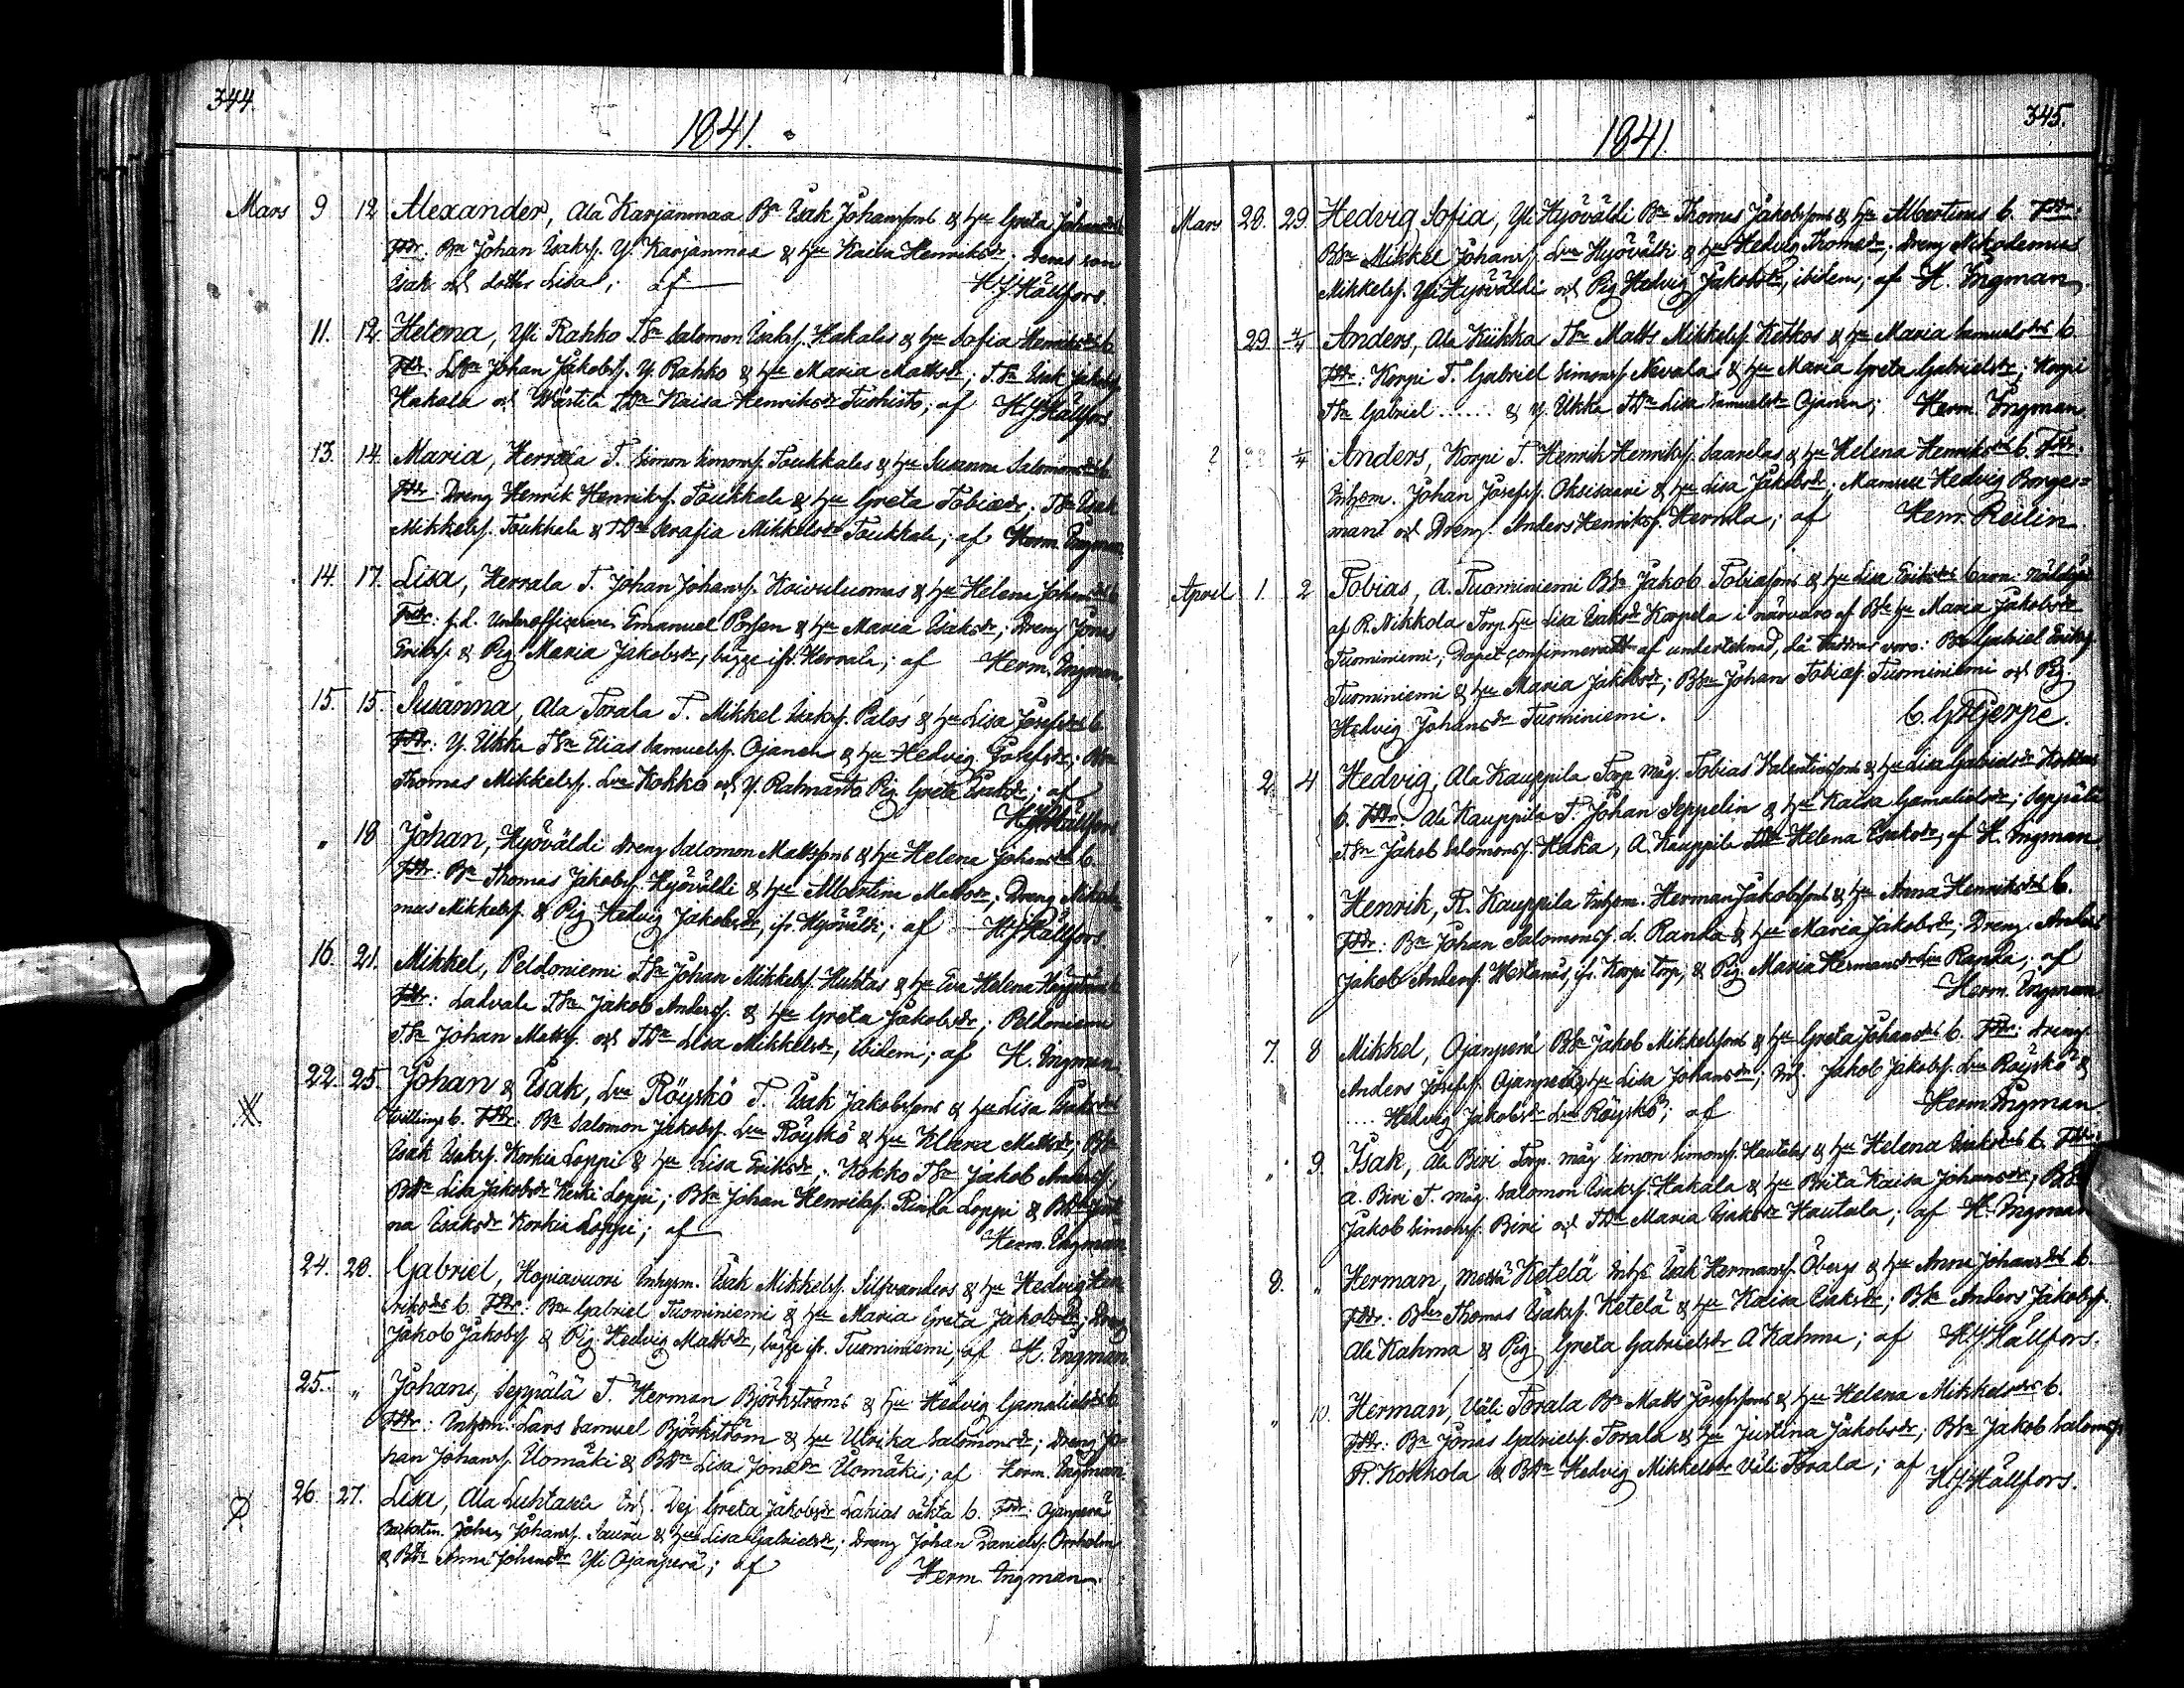 344.
1841.
Mars 9 12 Alexander, Ala Karjanmaa Bn Isak Johanssons & hu Greta Johansdrs
Fddr: Bn Johan Isakss. Y. Karjanmaa & hu Kaisa Henriksdr; deras son
Isak och dotter Lisa; af H J Hällfors.
11. 12. Helena, Yli Rahko TSn Salomon Isakss. Hakalas & hu Sofia Henriksdrs b.
Fddr: LBn Johan Jakobss. Y. Rahko & hu Maria Mattsdr; TSn Isak Jakobss
Hakala och Wästilä TDn Kaisa Henriksdr Tuohisto; af H J Hällfors
13. 14. Maria, Herrala T. Simon Simonss. Toukkalas & hu Susanna Salomonsdrs b.
Fddr: Dreng Henrik Henrikss. Toukkala & hu Greta Tobiædr; TSn Isak
Mikkelss. Toukkala & TDn Serafia Mikkelsdr Toukkala; af Herm. Ingman.
14. 17. Lisa, Herrala T. Johan Johanss. Koivuluomas & hu Helena Johansdrs b
Fddr: f.d. Underofficeren Emanuel Porsen & hu Maria Isaksdr; Dreng Jonas
Erikss & Pig. Maria Jakobsdr, bägge ifr. Herrala; af Herm. Ingman.
15. 15. Susanna, Ala Torala T. Mikkel Isakss. Palos & hu Lisa Josefsdrs b.
Fddr: Y. Ukka TSn Elias Samuelss. Ojanen & hu Hedvig Josefsdr; Bn
Thomas Mikkelss. Lva Kokko och Y. Ratmasto Pig. Greta Isaksdr; af
H J Hällfors
" 18 Johan, Hyöväldi dreng Salomon Mattssons & hu Helena Johansdrs b.
Fddr: Bn Thomas Jakobss. Hyöväldi & hu Albertina Mattsdr; Dreng Nikode-
mus Mikkelss. & Pig. Hedvig Jakobsdr, ifr. Hyöväldi; af H J Hällfors
16. 21. Mikkel, Peldoniemi TSn Johan Mikkelss. Huhtas & hu Eva Helena
Fddr: Ladvala TSn Jakob Anderss. & hu Greta Jakobsdr; Peldoniemi
TSn Johan Mattss. och TDn Lisa Mikkelsdr, ibidem; af H. Ingman.
22. 25. Johan & Isak, Lva Röyskö T. Isak Jakobssons & hu Lisa Isaksdrs
tvillings b. Fddr: Bn Salomon Jakobss. Lva Röyskö & hu Klara Mattsdr; BSn
Isak Isakss. Korkia Loppi & hu Lisa Eriksdr; Kokko TSn Jakob Anderss.
BDn Lisa Jakobsdr Keski Loppi; BSn Johan Henrikss. Rinda Loppi & BDn Justi-
na Isaksdr Korkia Loppi; af
Herm. Ingman
24. 28. Gabriel, Kopiavuori Inhysm. Isak Mikkelss. Silfvanders & hu Hedvig Hen-
riksdrs b. Fddr: Bn Gabriel Tuominiemi & hu Maria Greta Jakobsdr; Dreng
Jakob Jakobss & Pig. Hedvig Mattsdr, bägge ifr. Tuominiemi; af H. Ingman
25. " Johans, Seppälä T. Herman Björkströms & hu Hedvig Gamalielsdrs b
Fddr: Inhysm. Lars Samuel Björkström & hu Ulrika Salomonsdr; dreng Jo-
han Johanss. Uomäki & BDn Lisa Jonædr Uomäki; af Herm. Ingman
26. 27. Lisa, Ala Luhtasela Inh. Dej Greta Jakobsdr Lahias oäkta b. Fddr: Ojanperä
Johan Johanss. & hu Lisa Gabrielsdr; Dreng Johan Danielss. Orrholm
& BDn Anna Johansdr Yli Ojanperä; af Herm Ingman.
345.
1841.
Mars 28. 29. Hedvig Sofia, Yli Hyöväldi Bn Thomas Jakobssons & hu Albertinas b. Fddr:
BSn Mikkel Johanss. Lva Hyöväldi & hu Hedvig Thomædr; dreng Nikodemus
Mikkelss. Yli Hyöväldi och Pig Hedvig Jakobsdr, ibidem; af H. Ingman.
29 4/4 Anders, Ala Kiikka TSn Matts Mikkelss. Ketkos & hu Maria Samuelsdrs b.
Fddr: Korpi T. Gabriel Simonss. Nevala & hu Maria Greta Gabrielsdr; Korpi
TSn Gabriel ...... & Y. Ukka TDn Lisa Samuelsdr Ojanen; Herm. Ingman.
? 4/4 Anders, Korpi T. Henrik Henrikss. Saarelas & hu Helena Henriksdrs b. Fddr:
Inhysm. Johan Josefss. Oksisaari & hu Lisa Jakobsdr; Mamsell Hedvig Borges=
man och Dreng. Anders Henrikss. Herrala; af Henr. Reilin
April 1. 2 Tobias, A. Tuominiemi BSn Jakob Tobiassons & hu Lisa Eriksdrs barn. Nöddöpt
af R. Nikkola Torp. hu Lisa Isaksdr Korpela i närvaro af Bn hu Maria Jakobsdr
Tuominiemi; Dopet confirmerades af undertecknad, då faddrar voro: Bn Gabriel Erikss
Tuominiemi & hu Maria Jakobsdr; BSn Johan Tobiæss. Tuominiemi och Pig.
Hedvig Johansdr Tuominiemi. C. G Hjerpe.
2. 4 Hedvig, Ala Kauppila Torp. måg. Tobias Valentinssons & hu Lisa Gabrielsdr
b. Fddr: Ala Kauppila T. Johan Seppelin & hu Kaisa Gamalielsdr; Seppälä
TSn Jakob Salomonss. Haka, A. Kauppila TDn Helena Isaksdr; af H. Ingman
" " Henrik, R. Kauppila Inhysm. Herman Jakobssons & hu Anna Henriksdrs b.
Fddr: Bn Johan Salomonss. L. Ranka & hu Maria Jakobsdr; Dreng. Anders
Jakob Anderss. ifr. Korpi Torp; & Pig. Maria Hermansdr Lva Ranka; af
Herm. Ingman.
7. 8 Mikkel, Ojanperä BSn Jakob Mikkelssons & hu Greta Johansdrs b. Fddr: dreng.
Anders Josefss. Ojanperä & hu Lisa Johansdr; Inh. Jakob Jakobss. Lva Röyskö &
.... Hedvig Jakobsdr Lva Röyskö; af Herm. Ingman.
" 9. Isak, Ala Biri Torp. måg Simon Simonss. Hautalas & hu Helena Isaksdrs b. Fddr:
a. Biri T. måg. Salomon Isakss. Hakala & hu Brita Kaisa Johansdr; BSn
Jakob Simonss. Biri och TDn Maria Isaksdr Hautala; af H. Ingman
8. " Herman, Mettä Ketelä Inhs Isak Hermanss. Öbergs & hu Anna Johansdrs b.
Fddr: Bn Thomas Isakss. Ketelä & hu Kaisa Isaksdr; BSn Anders Jakobss.
Ala Kahma & Pig. Greta Gabrielsdr A Kahma; af H. J Hällfors.
" 10. Herman, Väli Torala Bn Matts Josefssons & hu Helena Mikkelsdrs b.
Fddr: Bn Jonas Gabrielss. Torala & hu Justina Jakobsdr; BSn Jakob Salomonss
R. Kokkola & BDn Hedvig Mikkelsdr Väli Torala; af H. J. Hällfors.